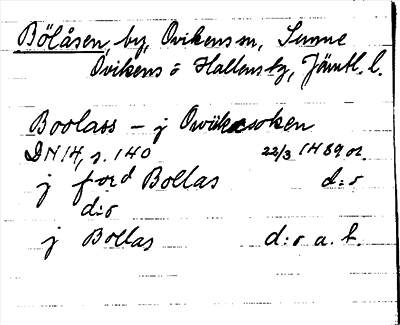 Bölåsen, by, Ovikens sn, Sunne
Ovikens o Hallens tg, Jämtl. l.
Boolass – j Owiikæsoken
DN 14, s. 140 22/3 1489 or.
j ford Bollas d:o
d:o
j Bollas d:o a. t.